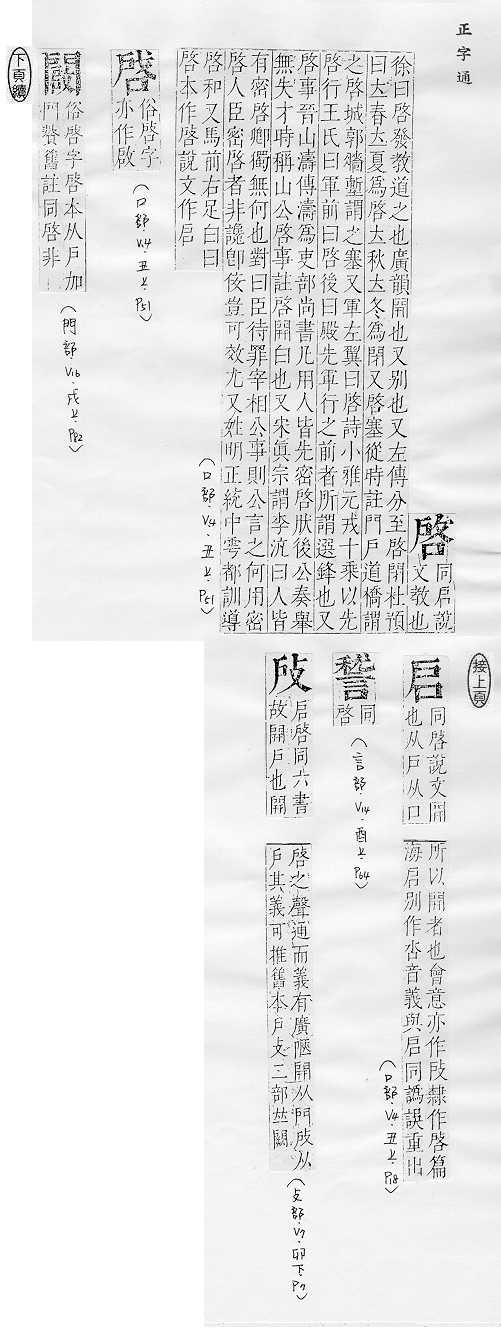 正字通
啓
同启說
文教也
徐曰啓發教道之也廣韻開也又別也又左傳分至啓閉杜預
曰立春立夏爲啓立秋立冬爲閉又啓塞從時註門戶道橋謂
之啓城郭牆塹謂之塞又軍左翼曰啓詩小雅元戎十乘以先
啓行王氏曰軍前曰啓後曰殿先軍行之前者所謂選鋒也又
啓事晉山濤傳濤爲吏部尚書凡用人皆先密啓朕後公奏舉
無失才時稱山公啓事註啓開白也又宋眞宗謂李沆曰人皆
有密啓卿獨無何也對曰臣待罪宰相公事則公言之何用密
啓人臣密啓者非讒卽佞豈可效尤又姓明正統中雩都訓導
啓和又馬前右足白曰
啓本作啓說文作启
(口部.V4.丑上.P51)
啓
俗啓字
亦作啟
(口部 V4.丑上.P51)
俗啓字啓本从戶加
門贅舊註同啓非
(門部 V16.戌上.P82)
下頁續
接上頁
启
同啓說文開
也从戶从口
所以開者也會意亦作㪃隸作啓篇
海启別作杏音義與启同譌誤重出
(口部.V4.丑上.P18)
同
啓
(言部.V14.酉上.P64)
㪃
启啓同六書
故開戶也開
啓之聲通而義有廣陿開从門㪃从
戶其義可推舊本戶攴二部𠀤闕
(攴部.V7.卯下.P7)